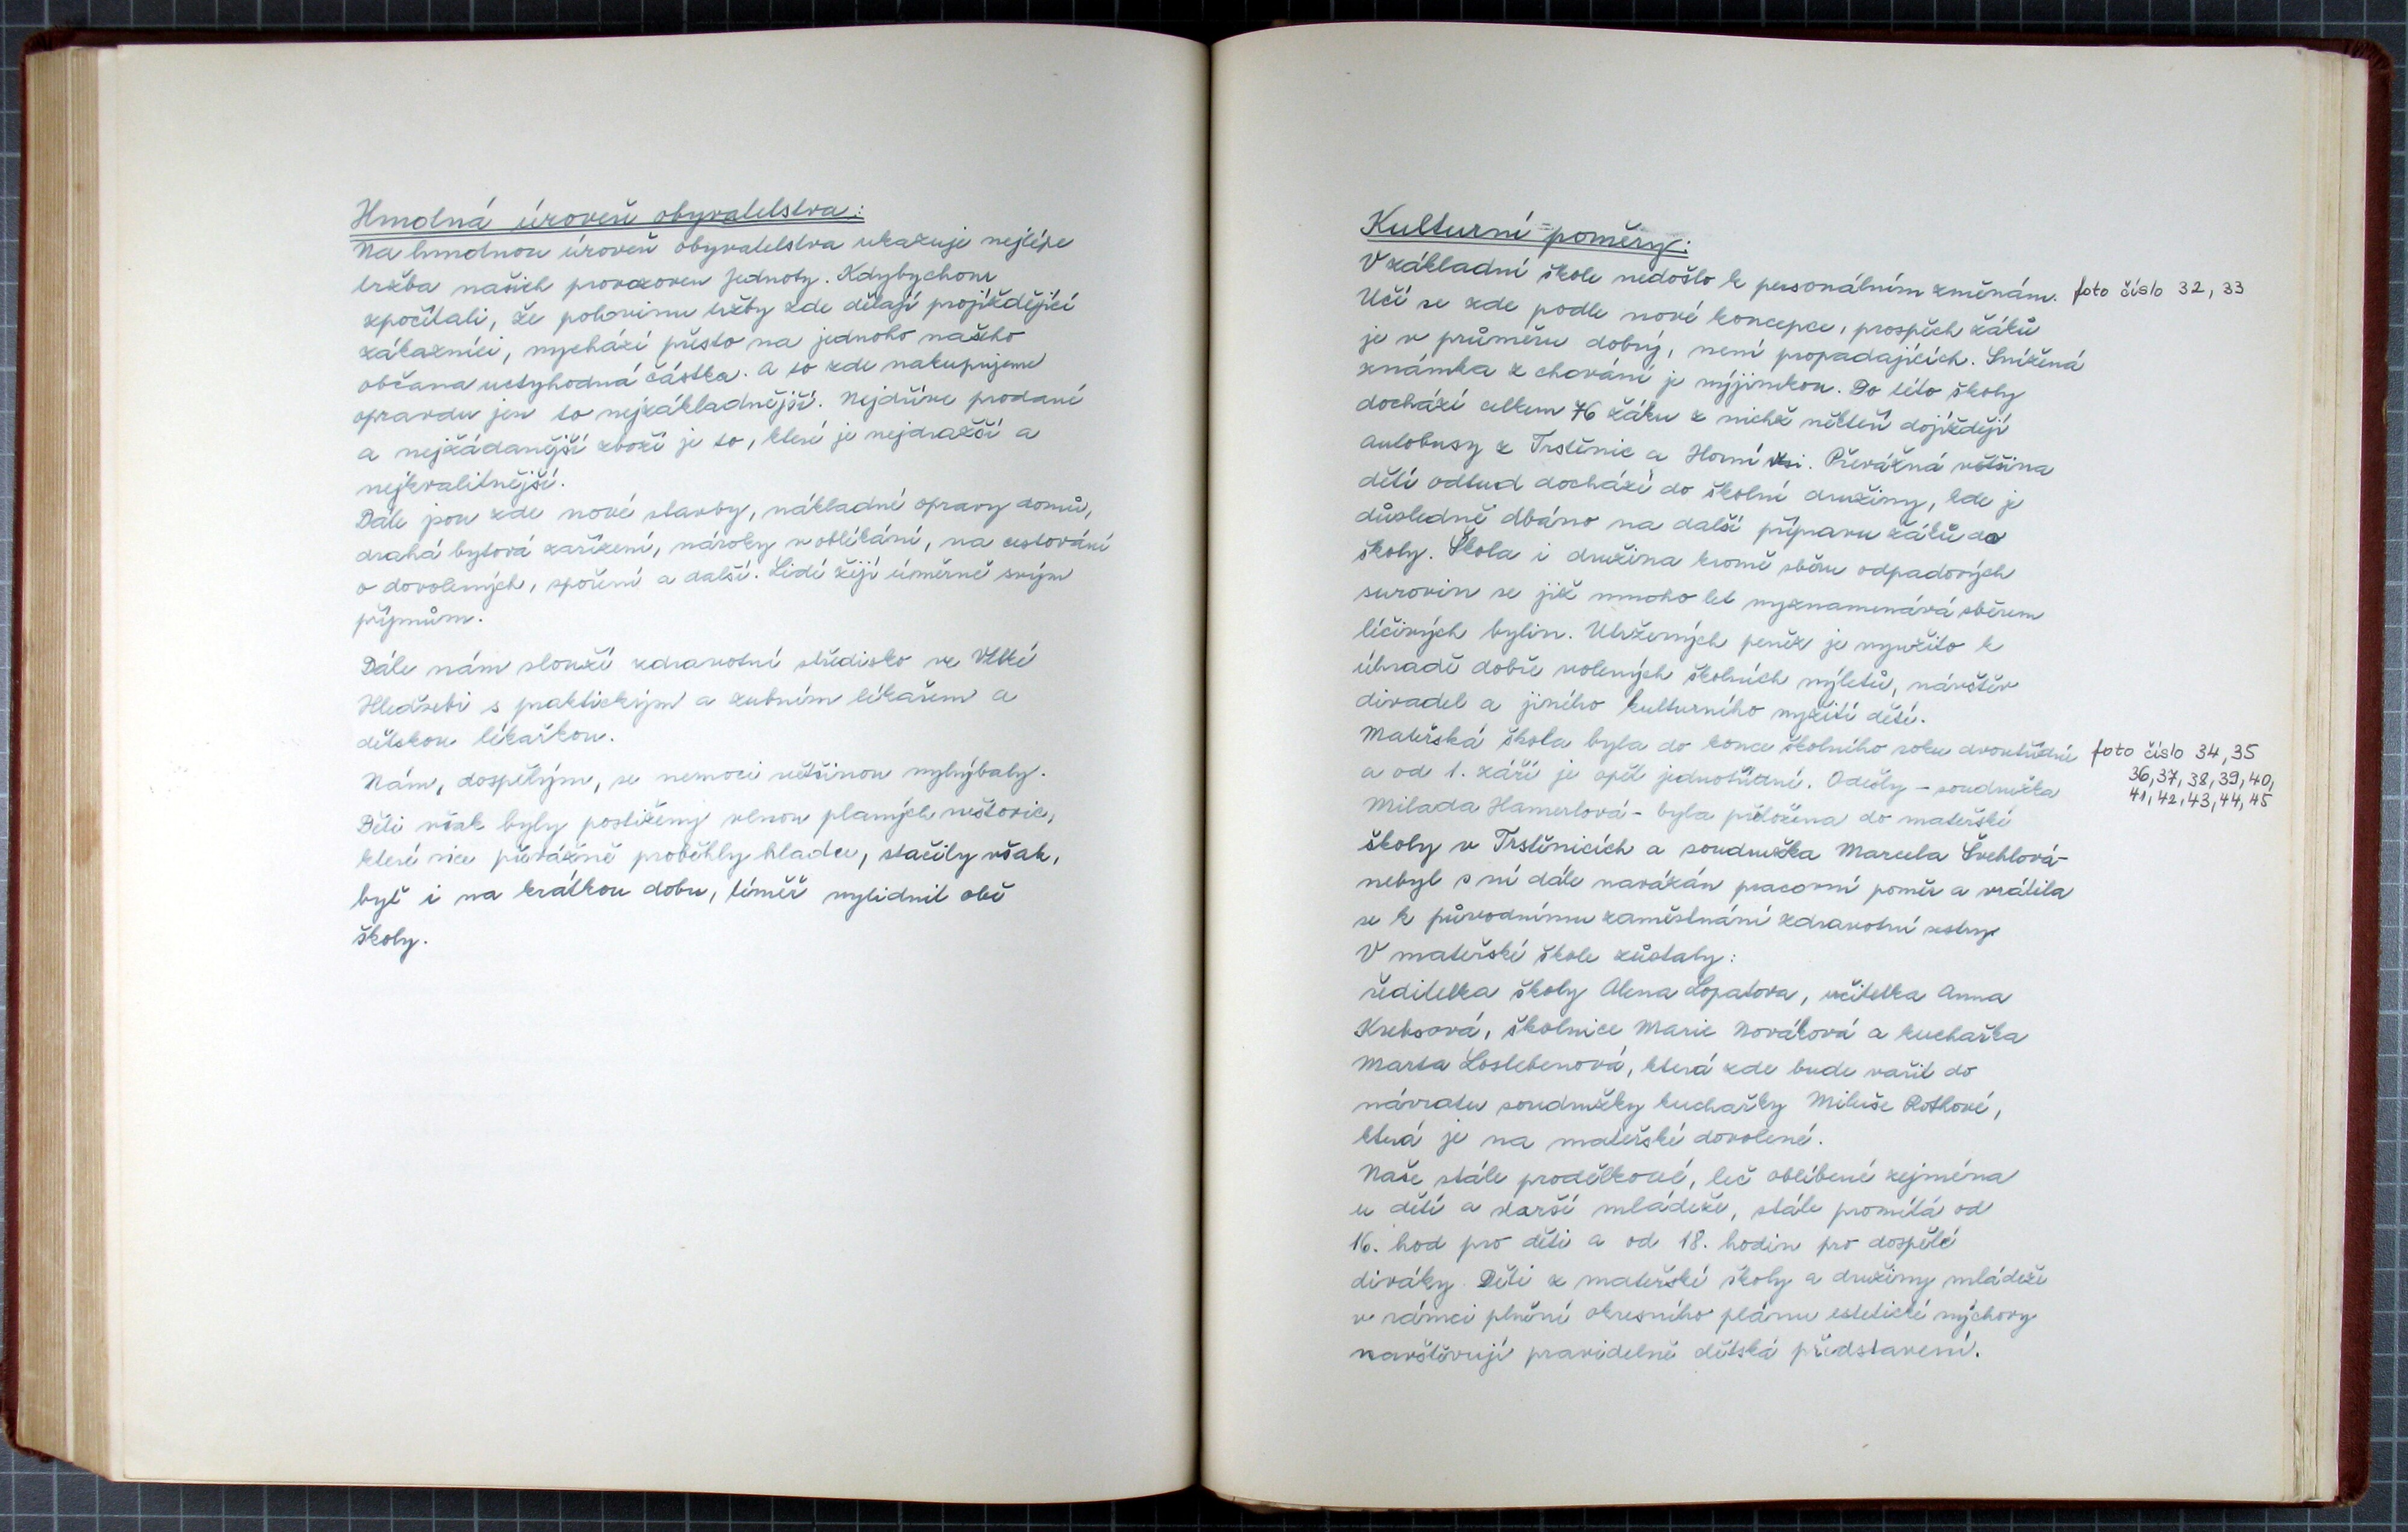 Hmotná úroveň obyvatelstva:
Na hmotnou úroveň obyvatelstva ukazuje nejlépe
tržba našich provozoven Jednoty. Kdybychom
spočítali, že polovinu tržby zde dělají projíždějící
zákazníci, vychází přesto na jednoho našeho
občana úctyhodná částka. A to zde nakupujeme
opravdu jen to nejzákladnější. Nejdříve prodané
a nejžádanější zboží je to, které je nejdražší a
nejkvalitnější.
Dále jsou zde nové stavby, nákladné opravy domů,
drahá bytová zařízení, nároky v oblékání, na cestování
o dovolených, spoření a další. Lidé žijí úměrně svým
příjmům.
Dále nám slouží zdravotní středisko ve Velké
Hleďsebi s praktickým a zubním lékařem a
dětskou lékařkou.
Nám, dospělým, se nemoci většinou vyhýbaly.
Děti však byly postiženy vlnou planých neštovic,
které sice převážně proběhly hladce, stačily však,
byť i na krátkou dobu, téměř vylidnit obě
školy.
Kulturní poměry:
V základní škole nedošlo k personálním změnám. foto číslo 32, 33
Učí se zde podle nové koncepce, prospěch žáků
je v průměru dobrý, není propadajících. Snížená
známka z chování je výjimkou. Do této školy
dochází celkem 76 žáku z nichž někteří dojíždějí
autobusy z Trstěnic a Horní vsi. Převážná většina
dětí odtud dochází do školní družiny, kde je
důsledně dbáno na další přípravu žáků do
školy. Škola i družina kromě sběru odpadových
surovin se již mnoho let vyznamenává sběrem
léčivých bylin. Utržených peněz je využito k
úhradě dobře volených školních výletů, návštěv
divadel a jiného kulturního vyžití dětí.
Mateřská škola byla do konce školního roku dvoutřídní foto číslo 34, 35
a od 1. září je opět jednotřídní. Odešly - soudružka 36, 37, 38, 39, 40,
Milada Hamerlová - byla přeložena do mateřské 41, 42, 43, 44, 45
školy v Trstěnicích a soudružka Marcela Švehlová -
nebyl s ní dále navázán pracovní poměr a vrátila
se k původnímu zaměstnání zdravotní sestry.
V mateřské škole zůstaly:
ředitelka školy Alena Lopatova, učitelka Anna
Krebsová, školnice Marie Nováková a kuchařka
Marta Loslebenová, která zde bude vařit do
návratu soudružky kuchařky Miluše Rothové,
která je na mateřské dovolené.
Naše stále prodělkové, leč oblíbené zejména
u dětí a starší mládeže, stále promítá od
16. hod pro děti a od 18. hodin pro dospělé
diváky. Děti z mateřské školy a družiny mládeže
v rámci plnění okresního plánu estetické výchovy
navštěvují pravidelně dětská představení.